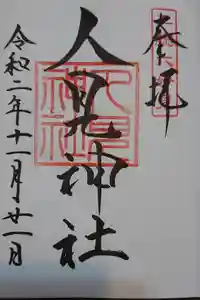 奉拝
人見神社
令和二年十一月廿一日